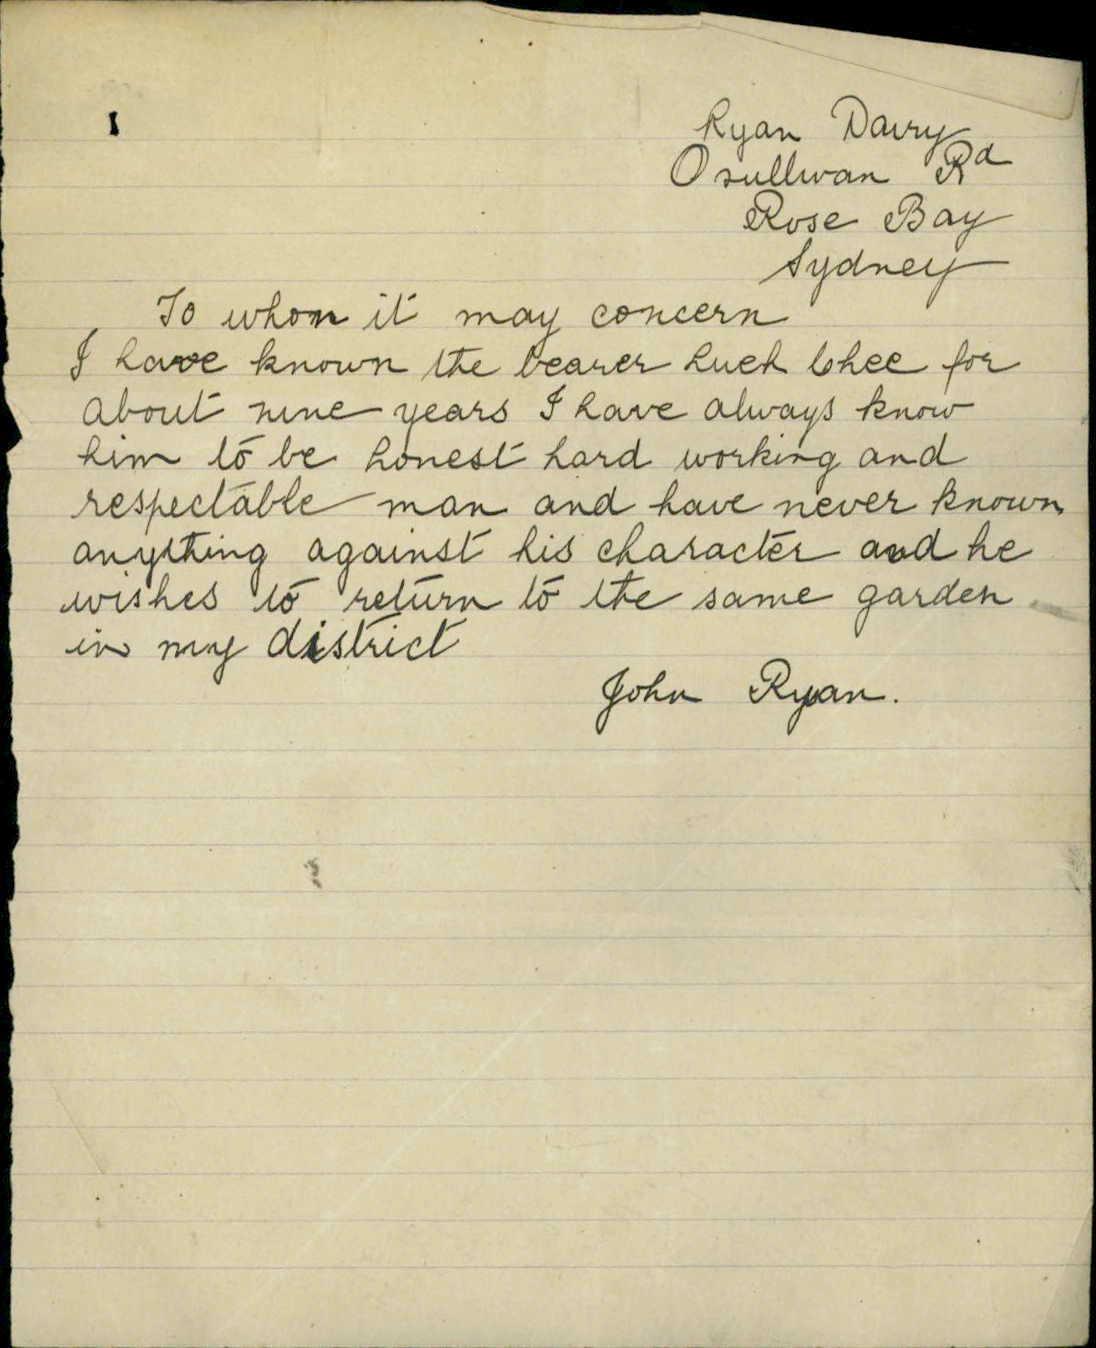 Ryan Dairy
Osullivan Rd
Rose Bay
Sydney
To whom it may concern
I have known the bearer Luck Chee for
about nine years I have always know
him to be honest hard working and
respectable man and have never known
anything against his character and he
wishes to return to the same garden
in my district
John Ryan.